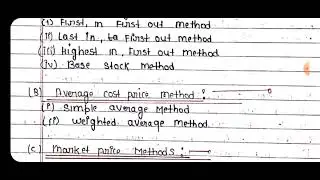 (i) First, in First out method
(ii) Last in, ta First out method
(iii) Highest in, First out method
(iv) Base stock method
(B) Average cost price method :
(i) simple average method
(ii) weighted average method
(c) market price methods :